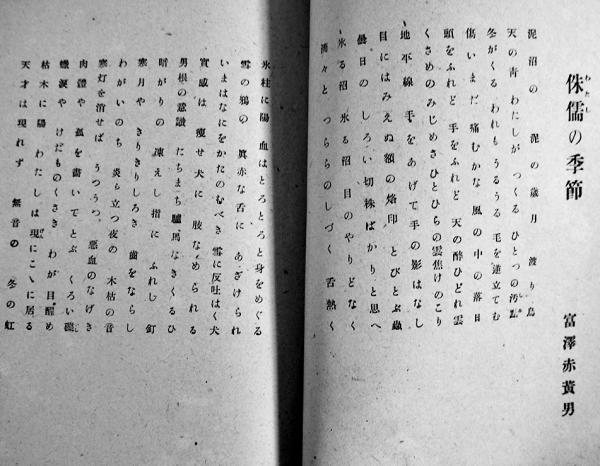 侏儒の季節
わたし
富澤赤黃男
泥沼の 泥の歳月 渡り鳥
天の靑 わたしが つくる ひとつの汚點
冬がくる われもうるうる 毛を逆立てむ
傷いまだ 痛むかな 風の中の落日
頭をふれど 手をふれど 天の醉ひどれ雲
くさめのみじめさひとひらの雲焦げのこり
地平線 手をあげて手の影はなし
目にはみえぬ額の烙印 とびとぶ蟲
曇日の しろい切株ばかりと思へ
氷る沼 氷る沼 目のやりどなく
滴々と つららのしづく 舌熱く
氷柱に陽 血はとろとろと身をめぐる
雪の鴉の 眞赤な舌に あざけられ
いまはなにをかたのむべき 雪に反吐はく犬
實感は 瘦せ犬に 肢なめられる
男根の意識 たちまち驢馬なきくるひ
暗がりの 凍えし指に ふれし釘
寒月や きりきりしろき 齒をならし
わがいのち 炎ら立つ夜の 木枯の音
寒灯を消せば うつうつ 惡血のなげき
肉體や 狐を畫いてとぶ くろい礫
蠟淚や けだものくさき わが目醒め
枯木に陽 わたしは現にこゝに居る
天才は現れず 無音の 冬の虹